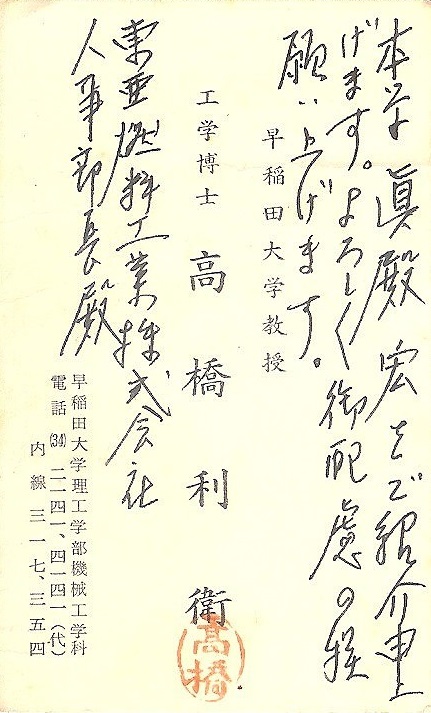 本学 眞殿 宏をご紹介申上
げます。よろしく御配慮の程
願い上げます。
早稲田大学教授
工学博士 高橋利衛
高橋
東亜燃料工業株式会社
人事部長殿
早稲田大学理工学部機械工学科
電話(34)二一四一、四一四一(代)
内線 三一七、三五四